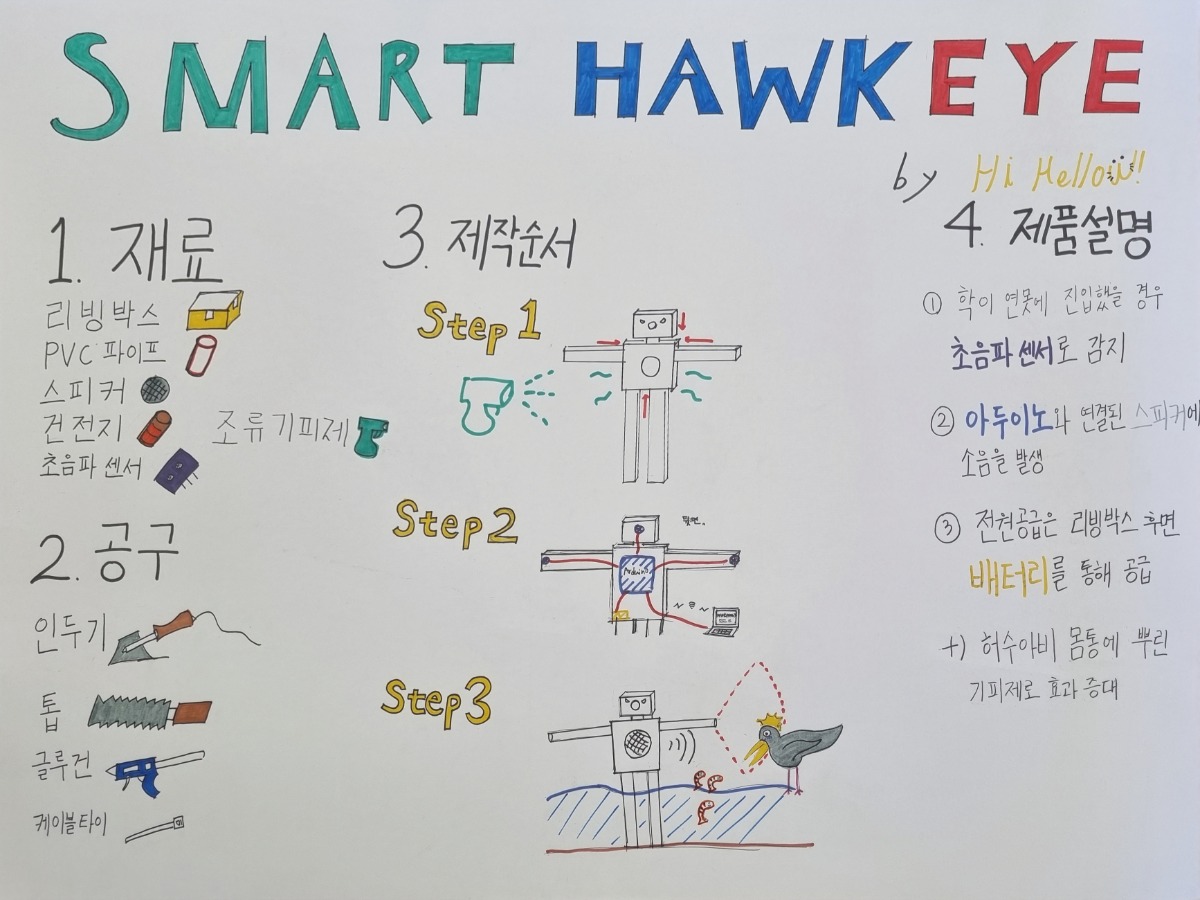 SMART HAWKEYE
by Hi Hellow!!
1. 재료
리빙박스
PVC 파이프
스피커
건전지
초음파 센서
조류기피제
2. 공구
인두기
톱
글루건
케이블타이
3. 제작순서
Step 1
Step 2
뒷면.
Arduino
Step 3
4. 제품설명
① 학이 연못에 진입했을 경우
초음파 센서로 감지
② 아두이노와 연결된 스피커에
소음을 발생
③ 전원공급은 리빙박스 후면
배터리를 통해 공급
+) 허수아비 몸통에 뿌린
기피제로 효과 증대